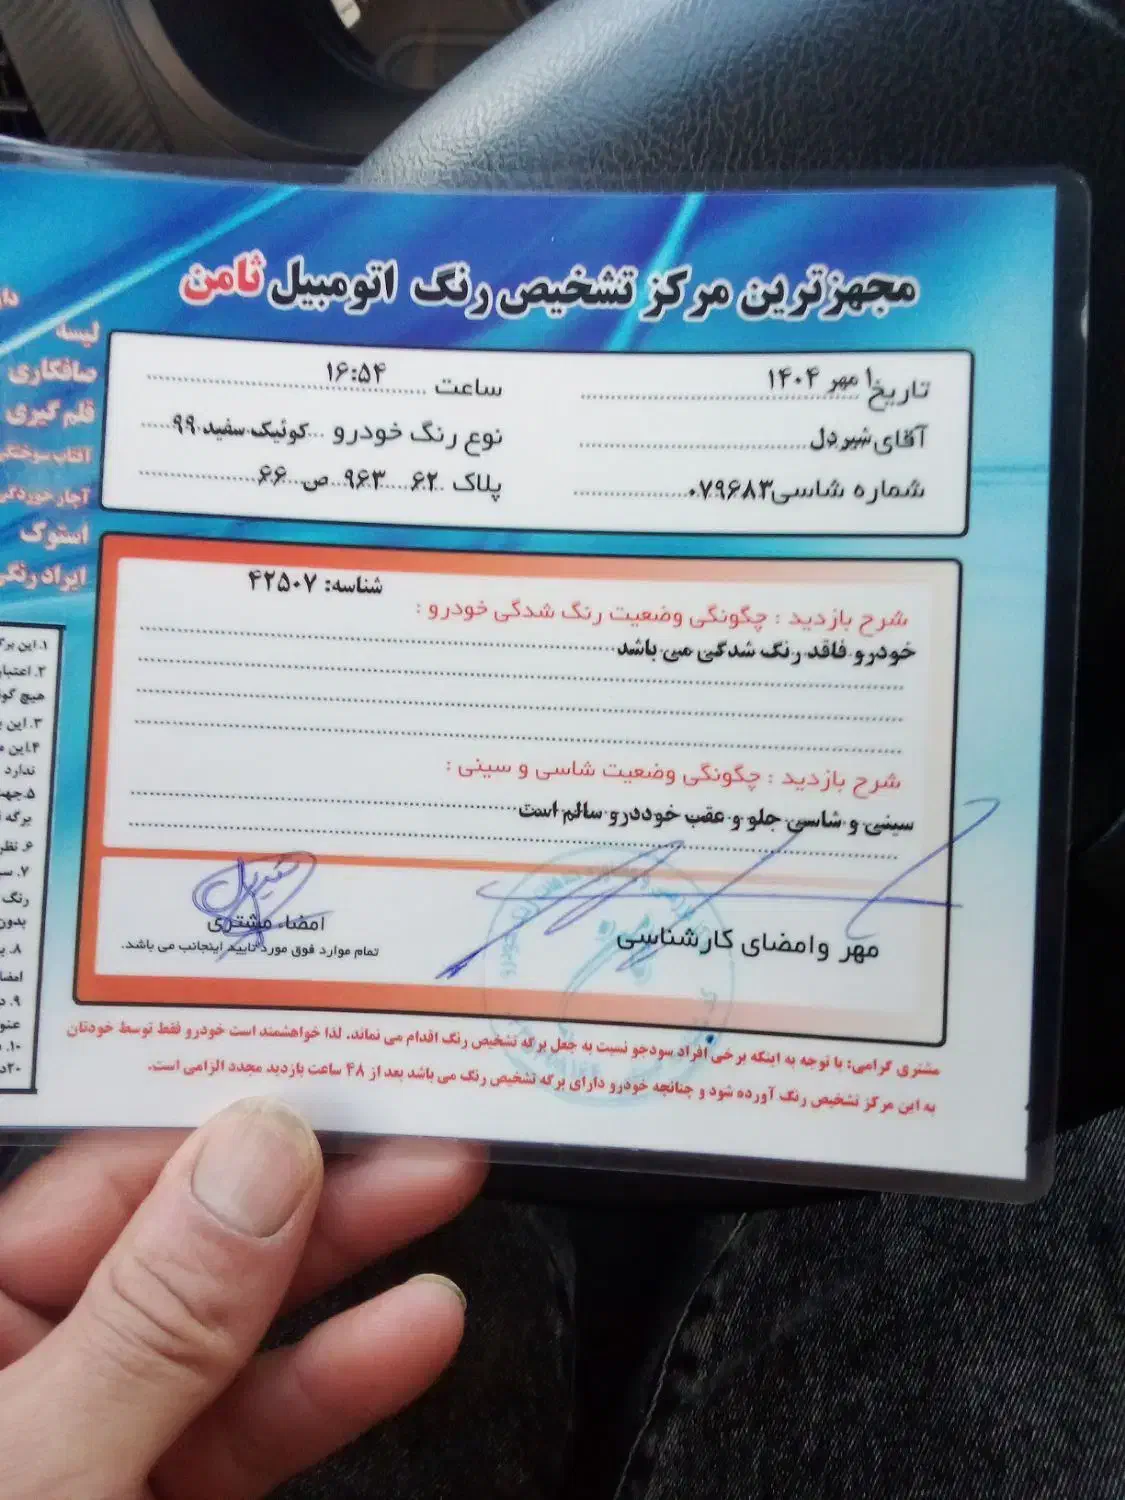 مجهزترین مرکز تشخیص رنگ اتومبیل ثامن
تاریخ ۱ مهر ۱۴۰۴
ساعت ۱۶:۵۴
آقای شیردل
نوع رنگ خودرو کوئیک سفید ۹۹
شماره شاسی ۰۷۹۶۸۳
پلاک ۶۲ ۹۶۳ ص ۶۶
شناسه: ۴۲۵۰۷
شرح بازدید : چگونگی وضعیت رنگ شدگی خودرو :
خودرو فاقد رنگ شدگی می باشد
شرح بازدید : چگونگی وضعیت شاسی و سینی :
سینی و شاسی جلو و عقب خوددرو سالم است
مهر وامضای کارشناسی
امضاء مشتری
تمام موارد فوق مورد تایید اینجانب می باشد.
مشتری گرامی: با توجه به اینکه برخی افراد سودجو نسبت به جعل برگه تشخیص رنگ اقدام می نماند. لذا خواهشمند است خودرو فقط توسط خودتان
به این مرکز تشخیص رنگ آورده شود و چنانچه خودرو دارای برگه تشخیص رنگ می باشد بعد از ۴۸ ساعت بازدید مجدد الزامی است.
لیسه
صافکاری
قلم گیری
آفتاب سوختگی
آچار خوردگی
استوک
ایراد رنگی
۱. این
۲. اعتبار
هیچ
۳. این
۴. این
ندارد
۵.
برگه
۶. نظر
۷.
رنگ
بدون
۸.
۹.
۱۰.